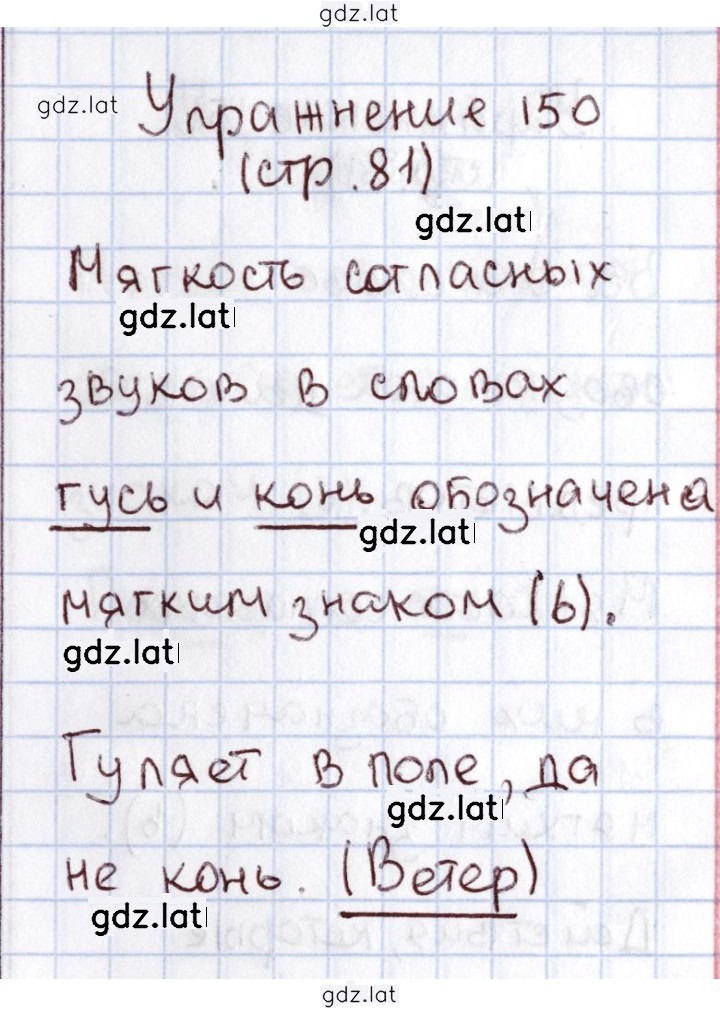 gdz.lat
gdz.lat
Упражнение 150
(стр. 81)
gdz.lat
Мягкость согласных
gdz.lat
звуков в словах
гусь и конь обозначена
gdz.lat
мягким знаком (ь).
gdz.lat
Гуляет в поле, да
gdz.lat
не конь. (Ветер)
gdz.lat
gdz.lat